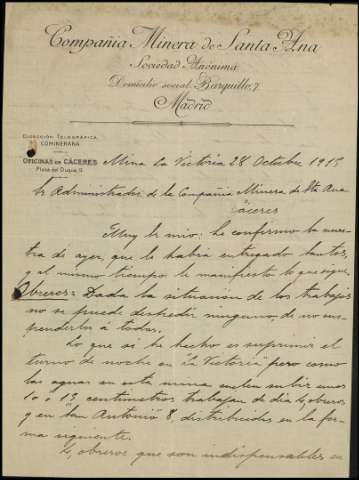 Compañia Minera de Santa Ana
Sociedad Anónima
Domicilio social: Barquillo, 7.
Madrid
DIRECCIÓN TELEGRÁFICA
COMINERANA
OFICINAS EN CÁCERES
Plaza del Duque, 11
Mina La Victoria 28 Octubre 1915
Sr Administrador de la Compañia Minera de Sta Ana
Cáceres
Muy Sr mio: le confirmo la nuestra
de ayer, que le habia entregado
y al mismo tiempo le manifiesto lo que sigue,
Obreros = Dada la situación de los trabajos
no se puede despedir ninguno, de no sus
penderlos á todos.
Lo que si he hecho es suprimir el
turno de noche en "La Victoria" pero como
las aguas en esta mina suelen subir unos
10 á 15 centimetros trabajan de dia 4 obreros
y en San Antonio 8, distribuidos en la for
ma siguiente.
4 obreros que son indispensables en